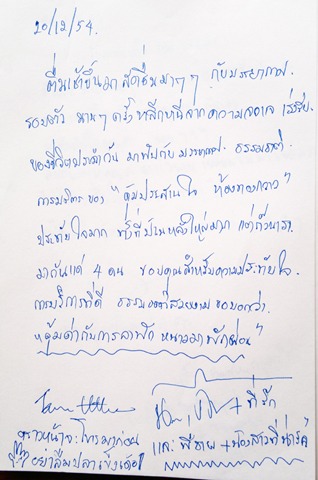 20/12/54.
ตื่นเช้าขึ้นมาสดชื่นมากๆ กับบรรยากาศ
รอบตัว นานๆครั้งหลีกหนีจากความวุ่นวาย เร่งรีบ
ของชีวิตประจำวัน มาพบกับบรรยากาศ ธรรมชาติ
การบริการ ของ "คุ้มประสานใจ ห้องทองกวาว"
ประทับใจมาก ทั้งที่บ้านหลังใหญ่มาก แต่พวกเรา
มากันแค่ 4 คน ขอบคุณสำหรับความประทับใจ
การบริการที่ดี ธรรมชาติสวยงาม ขอบอกว่า
"คุ้มค่ากับการลาพัก หนาวมาพักผ่อน"
+ ที่รัก
คราวหน้าจะโทรมาก่อน และ พี่ชาย + น้องสาวที่น่ารัก
อย่าลืมปลาเข็งเด้อ!